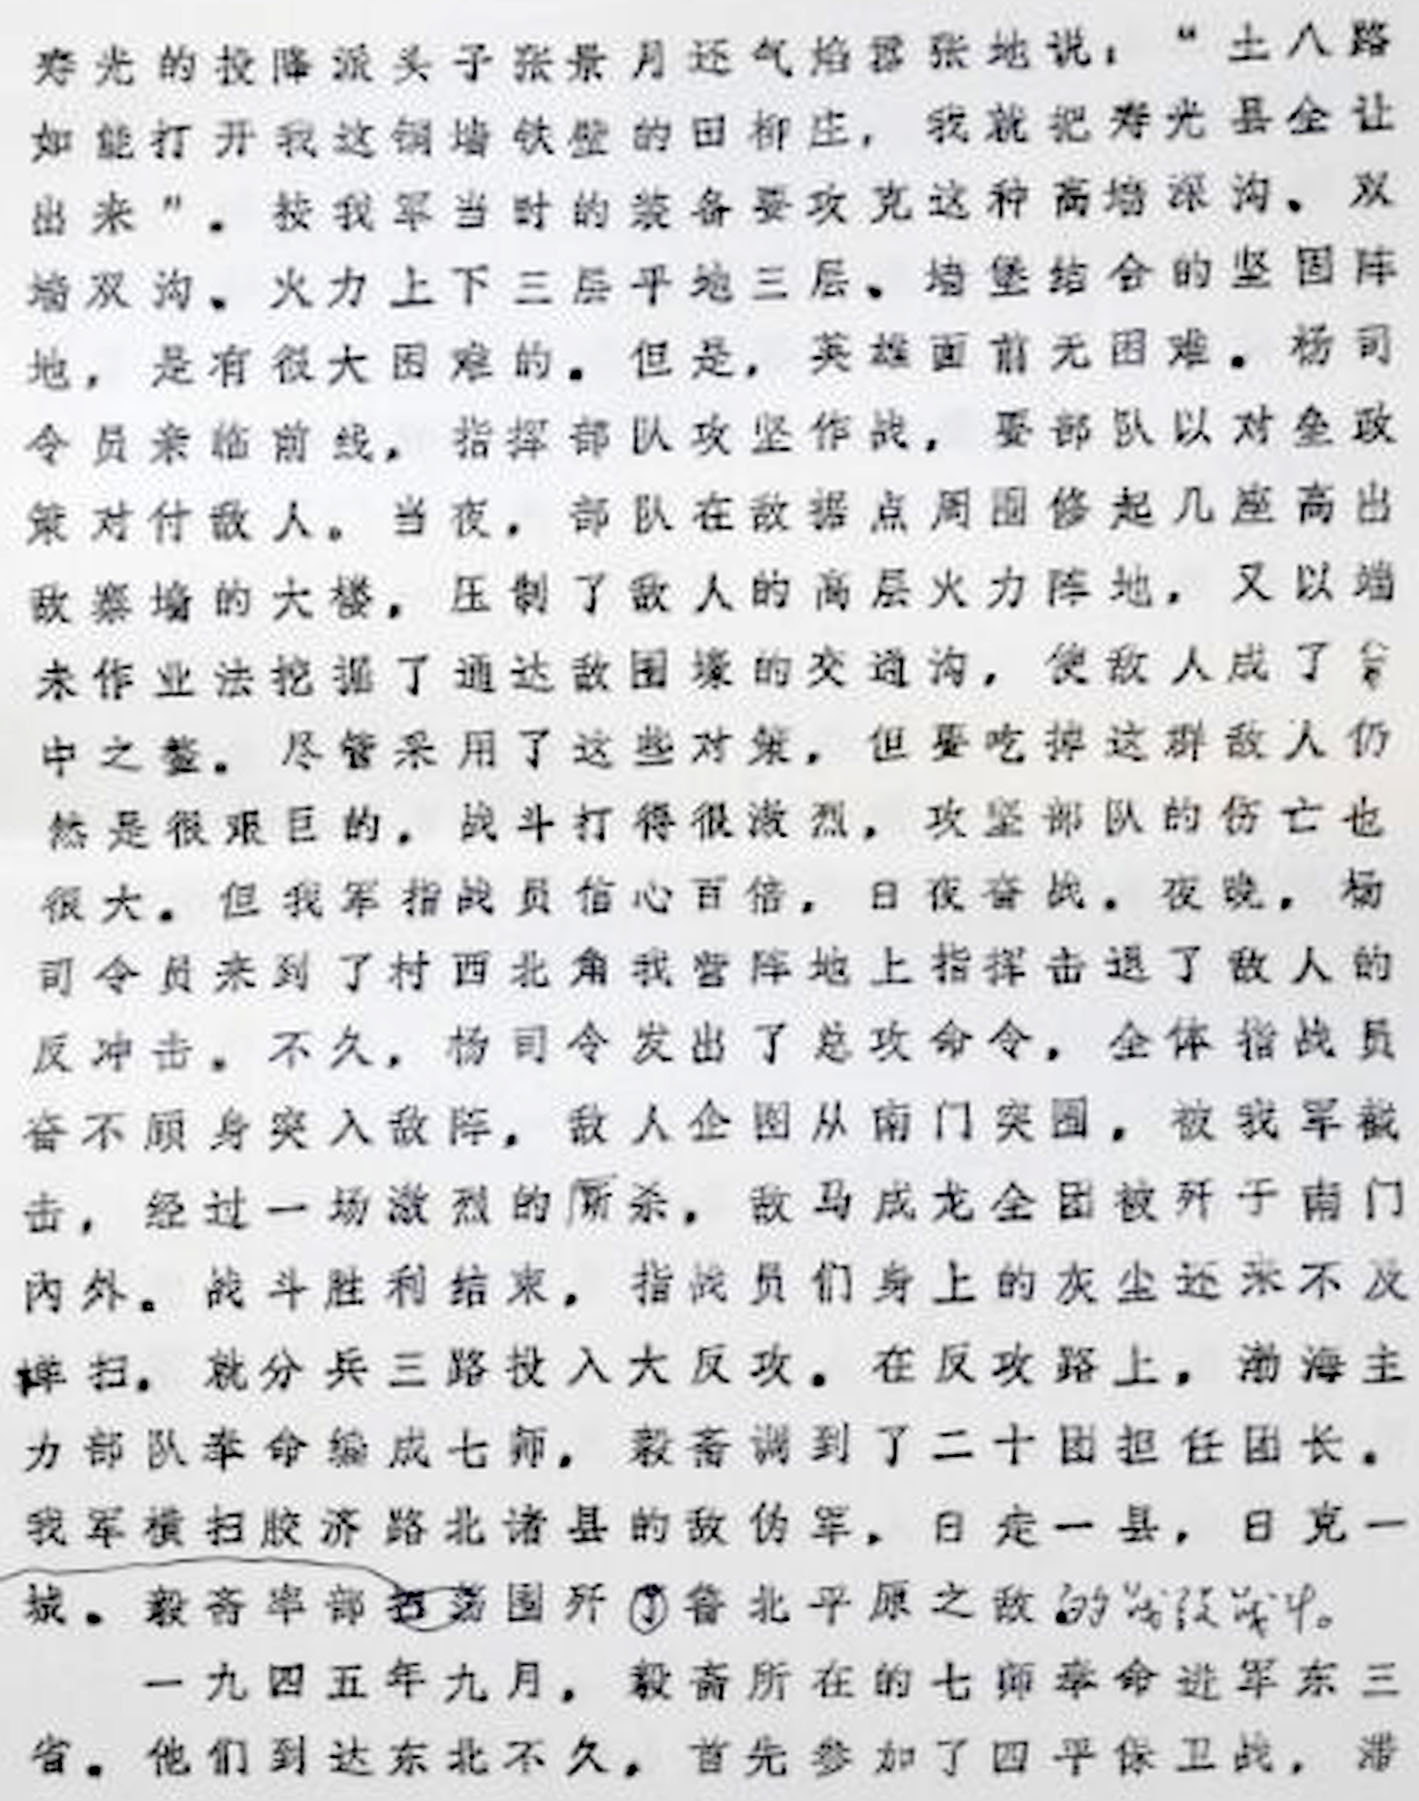 寿光的投降派头子张景月还气焰嚣张地说：“土八路
如能打开我这铜墙铁壁的田柳庄，我就把寿光县全让
出来”。按我军当时的装备要攻克这种高墙深沟、双
墙双沟、火力上下三层平地三层、墙堡结合的坚固阵
地，是有很大困难的。但是，英雄面前无困难。杨司
令员亲临前线，指挥部队攻坚作战，要部队以对垒政
策对付敌人。当夜，部队在敌据点周围修起几座高出
敌寨墙的大楼，压制了敌人的高层火力阵地，又以端
末作业法挖掘了通达敌围壕的交通沟，使敌人成了
中之鳖。尽管采用了这些对策，但要吃掉这群敌人仍
然是很艰巨的，战斗打得很激烈，攻坚部队的伤亡也
很大。但我军指战员信心百倍，日夜奋战。夜晚，杨
司令员来到了村西北角我营阵地上指挥击退了敌人的
反冲击。不久，杨司令发出了总攻命令，全体指战员
奋不顾身突入敌阵，敌人企图从南门突围，被我军截
击，经过一场激烈的厮杀，敌马成龙全团被歼于南门
内外。战斗胜利结束，指战员们身上的灰尘还来不及
掸扫，就分兵三路投入大反攻。在反攻路上，渤海主
力部队奉命编成七师，毅斋调到了二十团担任团长。
我军横扫胶济路北诸县的敌伪军，日走一县，日克一
城。毅斋率部围歼了鲁北平原之敌的战役战中。
一九四五年九月，毅斋所在的七师奉命进军东三
省。他们到达东北不久，首先参加了四平保卫战，滞